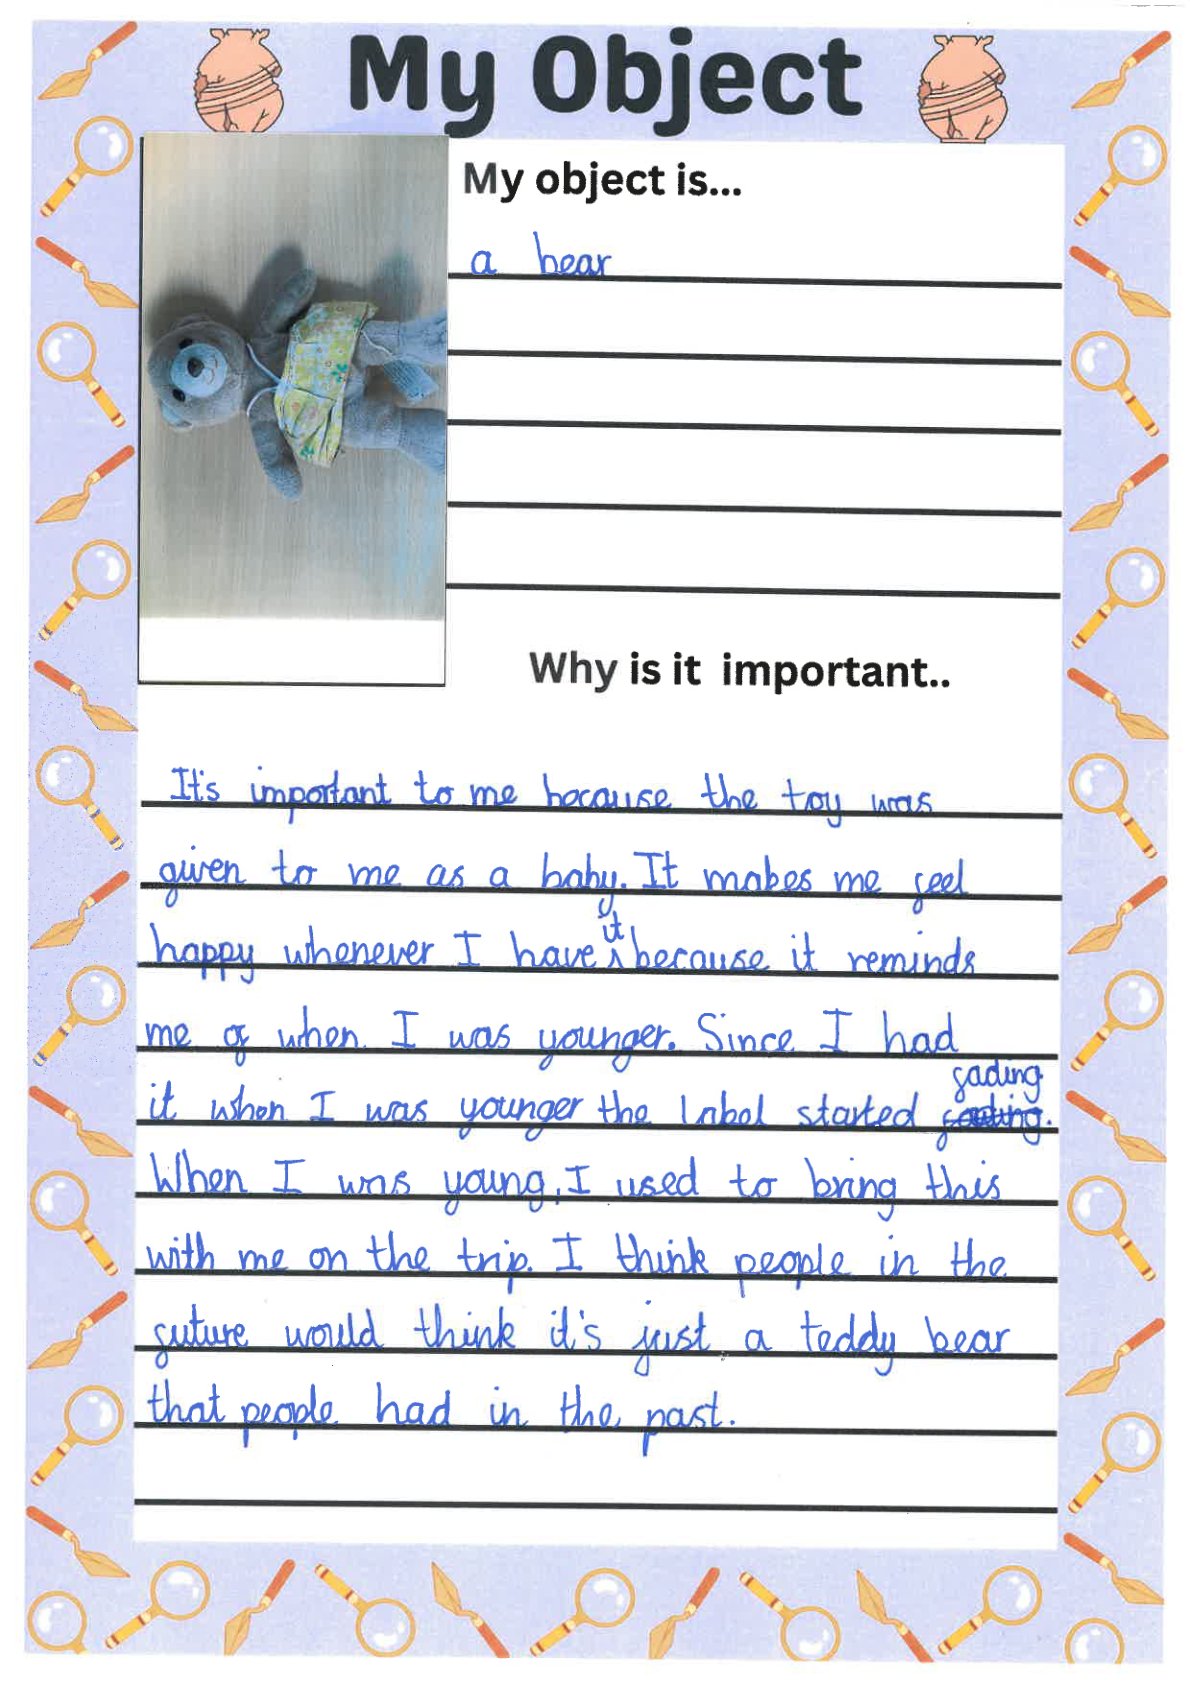 My Object
My object is...
a bear
Why is it important..
It's important to me because the toy was
given to me as a baby. It makes me feel
happy whenever I have it because it reminds
me of when I was younger. Since I had
it when I was younger the label started fading.
When I was young, I used to bring this
with me on the trip. I think people in the
future would think it's just a teddy bear
that people had in the past.